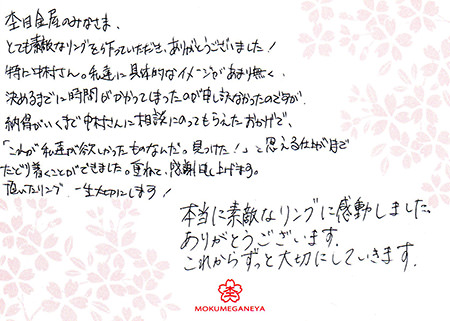 杢目金屋のみなさま、
とても素敵なリングを作っていただき、ありがとうございました!
特に中村さん。私達に具体的なイメージがあまり無く、
決めるまでに時間がかかってしまったのが申し訳なかったのですが、
納得がいくまで中村さんに相談にのってもらえたおかげで、
「これが私達が欲しかったものなんだ。見つけた!」と思える仕上がりまで
たどり着くことができました。重ねて、感謝申し上げます。
頂いたリング、一生大切にします!
本当に素敵なリングに感動しました。
ありがとうございます。
これからずっと大切にしていきます。
MOKUMEGANEYA